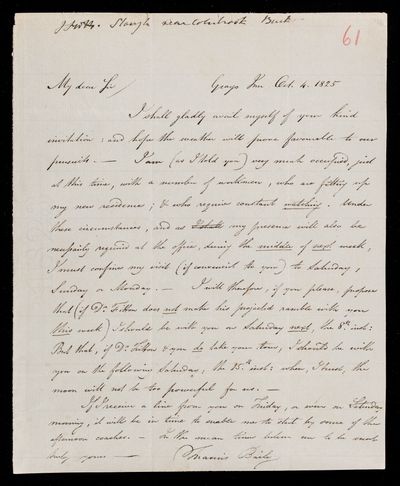 Slough near Colnbrook Buck
61
My dear Sir
Grays Inn Oct. 4. 1825
I shall gladly avail myself of your kind
invitation: and hope the weather will prove favourable to our
pursuits. — I am (as I told you) very much occupied, just
at this time, with a number of workmen, who are fitting up
my new residence; & who require constant watching. Under
these circumstances, and as my presence will also be
necessarily required at the office, during the middle of next week,
I must confine my visit (if convenient to you) to Saturday,
Sunday or Monday. — I will therefore, if you please, propose
that (if Dr. Fitton does not make his projected ramble with you
this week) I should be with you on Saturday next, the 8th. inst:
But that, if Dr. Fitton & you do take your tour, I should be with
you on the following Saturday, the 15th. inst: when, I trust, the
moon will not be too powerful for us. —
If I receive a line from you on Friday, or even on Saturday
morning, it will be in time to enable me to start by some of the
afternoon coaches. — In the mean time believe me to be very
truly yours —
Francis Baily